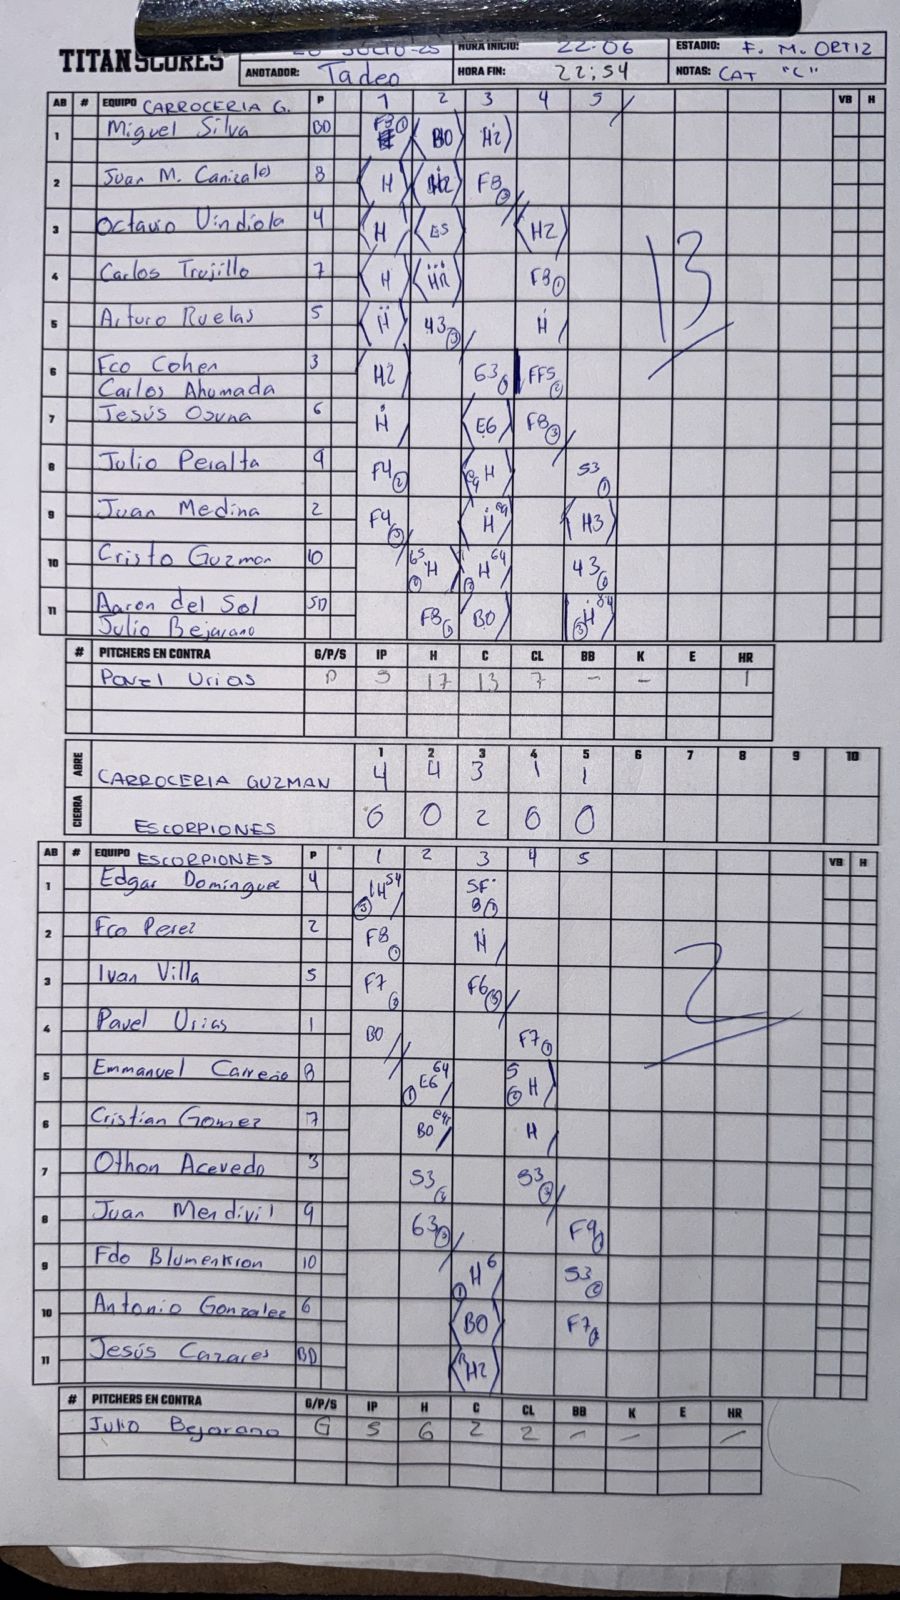 TITAN SCORES
HORA INICIO: 22:06
ESTADIO: F. M. ORTIZ
ANOTADOR: Tadeo
HORA FIN: 22:54
NOTAS: CAT "C"
AB # EQUIPO CARROCERIA G. P 1 2 3 4 5 VB H
1 Miguel Silva BD BO H2
2 Juan M. Canizales 8 H H2 F8
3 Octavio Vindiola 4 H E5 H2
4 Carlos Trujillo 7 H HR F8 1
5 Arturo Ruelas 5 H 43 3 H
6 Fco Cohen 3 H2 63 1 FF5 2
Carlos Ahumada
7 Jesús Osuna 6 H E6 F8 3
8 Julio Peralta 9 F4 2 H 53 1
9 Juan Medina 2 F4 3 H H3
10 Cristo Guzman 10 65 H H 64 43
11 Aaron del Sol SD F8 BO H 3
Julio Bejarano
13
# PITCHERS EN CONTRA G/P/S IP H C CL BB K E HR
Pavel Urias P 5 17 13 7 - - 1
1 2 3 4 5 6 7 8 9 10
ABRE CARROCERIA GUZMAN 4 4 3 1 1
CIERRA ESCORPIONES 0 0 2 0 0
AB # EQUIPO ESCORPIONES P 1 2 3 4 5 VB H
1 Edgar Dominguez 4 H 54 SF 8
2 Fco Perez 2 F8 1 H
3 Ivan Villa 5 F7 2 F6 3
4 Pavel Urias 1 BO F7 1
5 Emmanuel Carreño 8 E6 64 1 5 H
6 Cristian Gomez 7 BO H
7 Othon Acevedo 3 53 2 53 3
8 Juan Mendivil 9 63 3 F9
9 Fdo Blumenkron 10 H 6 1 53 2
10 Antonio Gonzalez 6 BO F7
11 Jesús Cazares BD H2
2
# PITCHERS EN CONTRA G/P/S IP H C CL BB K E HR
Julio Bejarano G 5 6 2 2 - - -